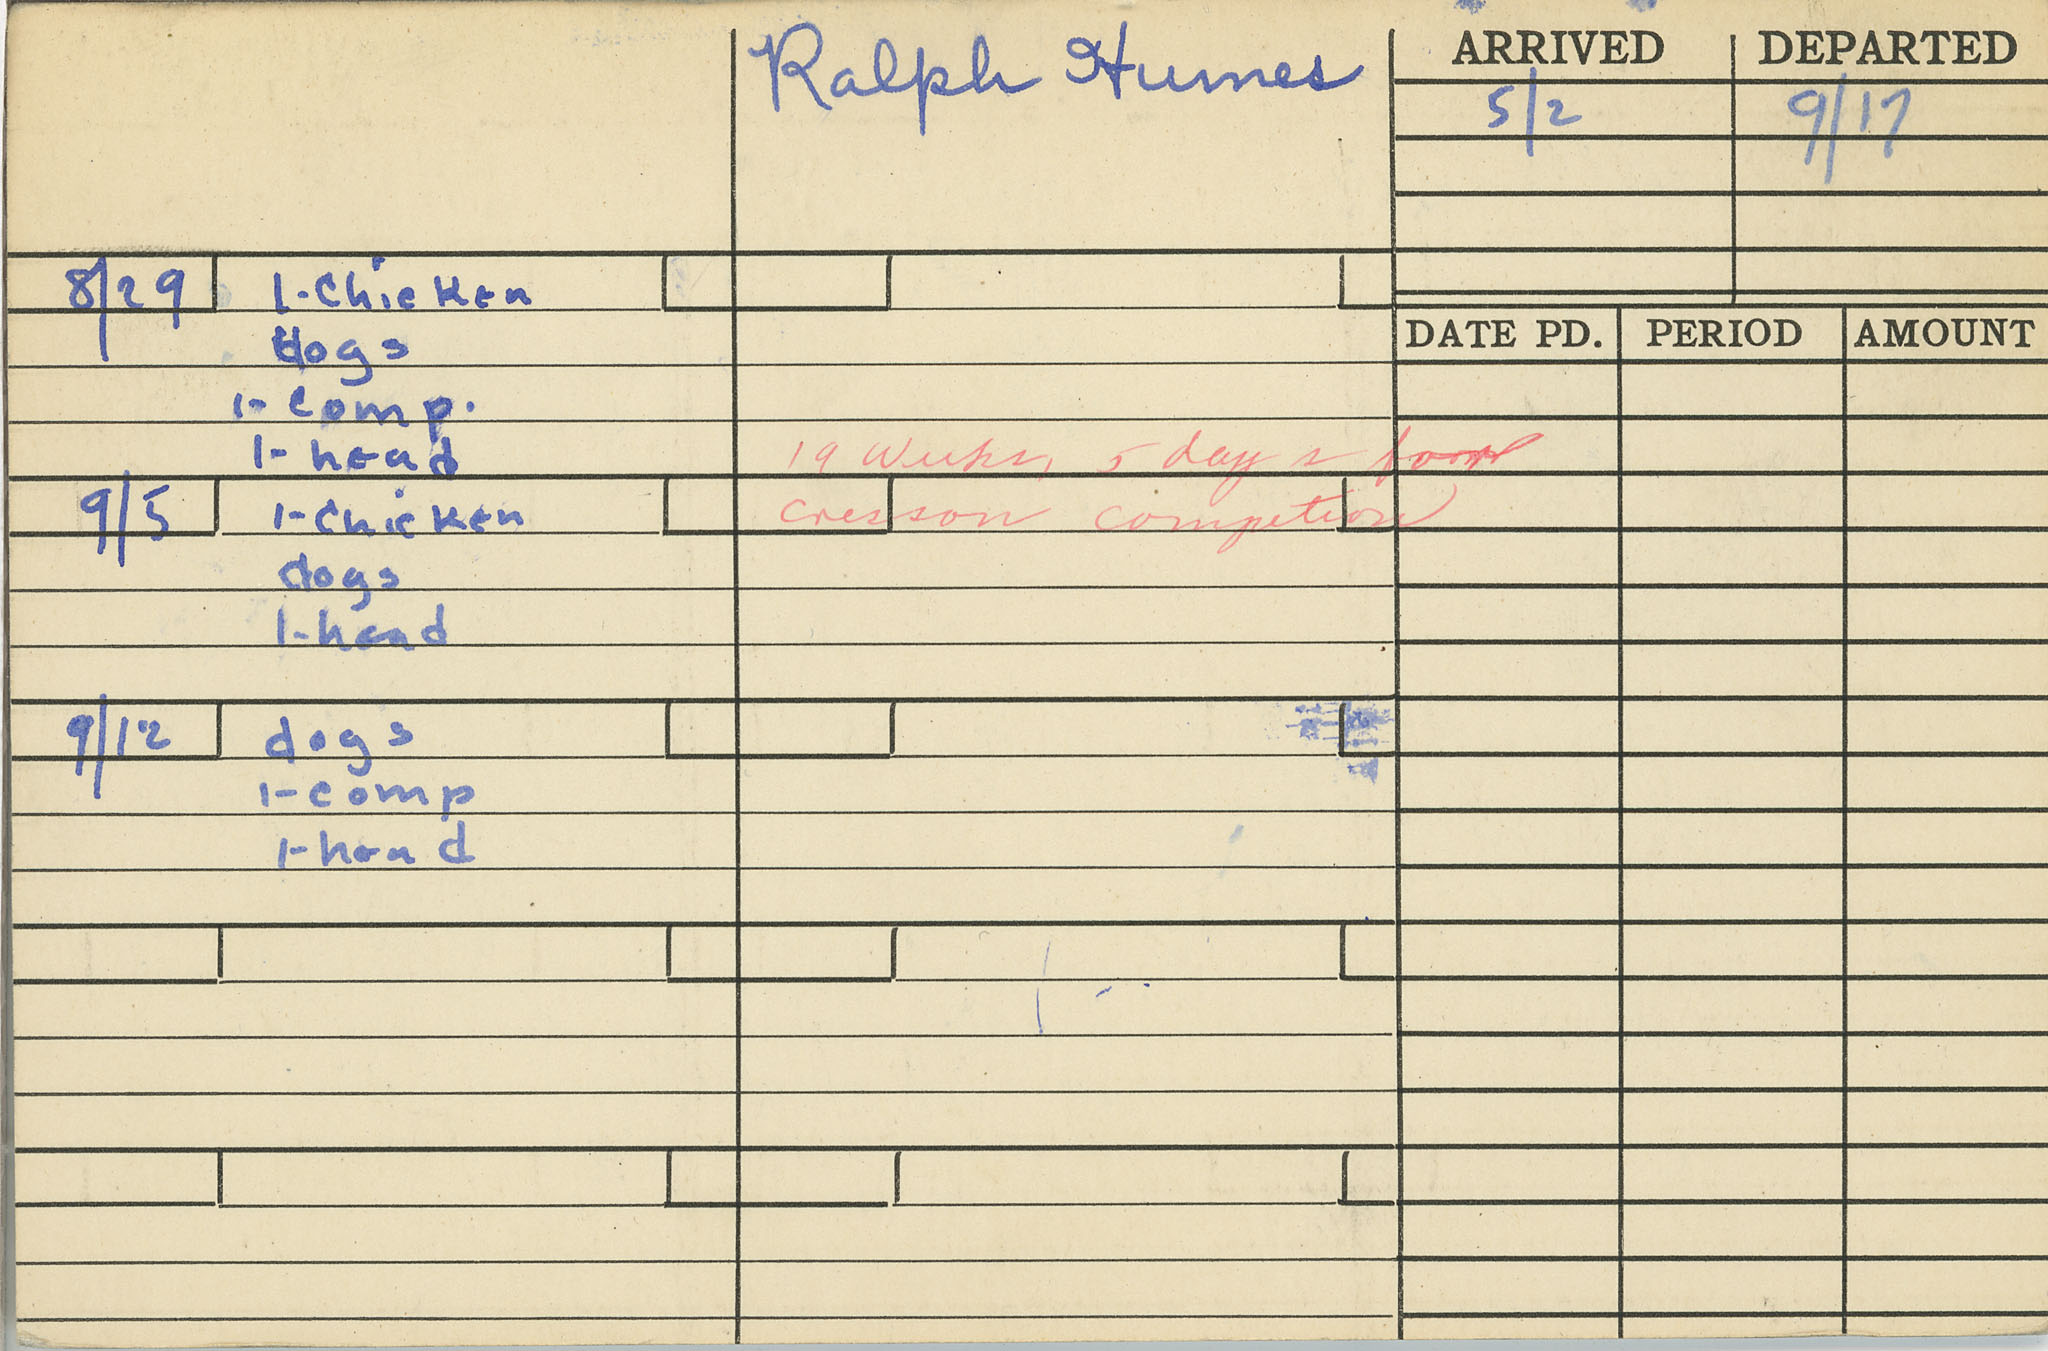 Ralph Humes
ARRIVED DEPARTED
5/2 9/17
8/29 1-Chicken
dogs
1-Comp.
1-head
9/5 1-Chicken
dogs
1-head
9/12 dogs
1-comp
1-head
19 weeks, 5 days from
Cresson competion
DATE PD. PERIOD AMOUNT